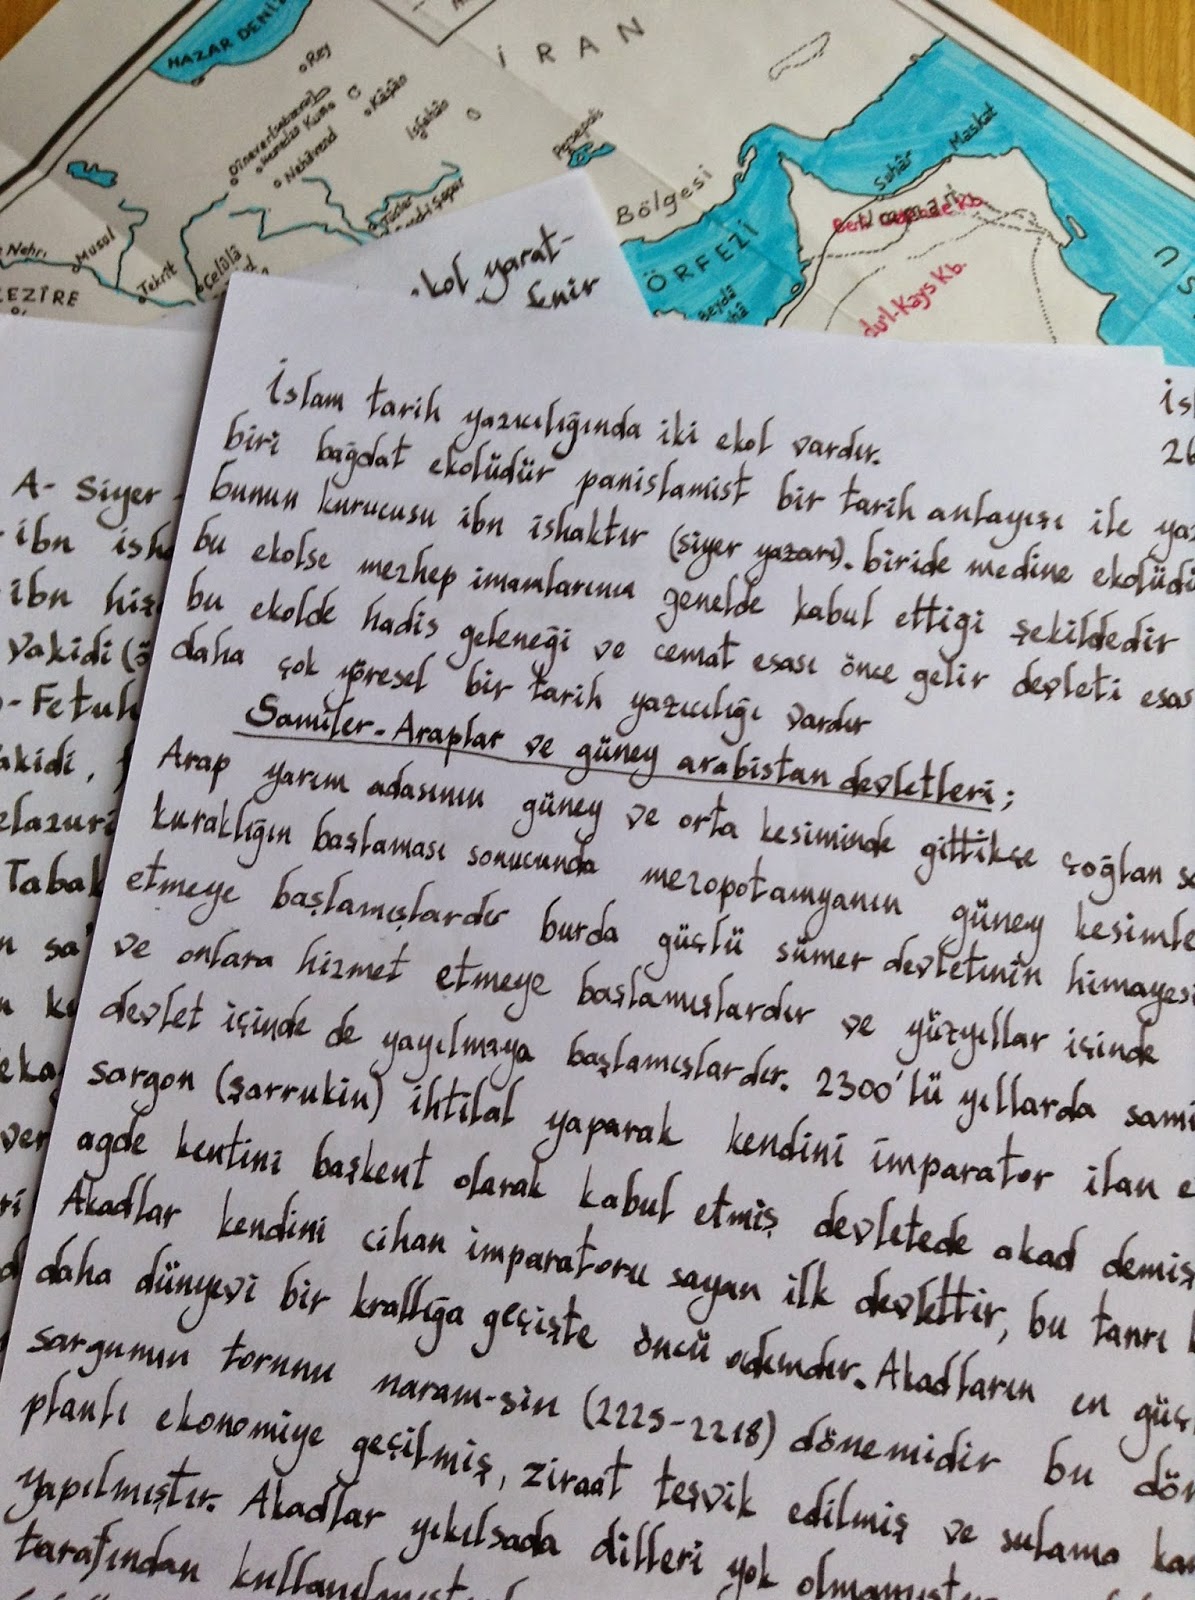 HAZAR DENİZ
İRAN
Rey
Kâşân
Isfahân
Dinever
Nehâvend
Persepolis
Bölgesi
Suhâr
Maskat
ÖRFEZİ
Umman
Beydâ
du'l-Kays Kb.
Nehri
Musul
Tekrit
Celûlâ
EZİRE
kol yarat-
enir
İslam tarih yazıcılığında iki ekol vardır.
biri bağdat ekolüdür panislamist bir tarih anlayışı ile yaz
bunun kurucusu ibn ishaktır (siyer yazarı). biride medine ekolüdi
bu ekolse mezhep imamlarının genelde kabul ettiği şekildedir
bu ekolde hadis geleneği ve cemat esası önce gelir devleti esas
daha çok yöresel bir tarih yazıcılığı vardır
Samiler-Araplar ve güney arabistan devletleri;
Arap yarım adasının güney ve orta kesiminde gittikçe çoğlan sa
kuraklığın başlaması sonucunda mezopotamyanın güney kesimle
etmeye başlamışlardır burda güçlü sümer devletinin himayesi
ve onlara hizmet etmeye başlamışlardır ve yüzyıllar içinde
devlet içinde de yayılmaya başlamışlardır. 2300'lü yıllarda sami
sargon (şarrukin) ihtilal yaparak kendini imparator ilan e
agde kentini başkent olarak kabul etmiş devletede akad demiş
Akadlar kendini cihan imparatoru sayan ilk devlettir, bu tanrı k
daha dünyevi bir krallığa geçişte öncü adımdır. Akadların en güç
sargunun torunu naram-sin (2225-2218) dönemidir bu dön
planlı ekonomiye geçilmiş, ziraat teşvik edilmiş ve sulama kan
yapılmıştır. Akadlar yıkılsada dilleri yok olmamıştır
tarafından
A- Siyer -
ibn isha
ibn hiş
vakidi (ö
- Fetuh
akidi,
elazuri
Tabak
n sa'
eka
ver
ri
d
İsl
26